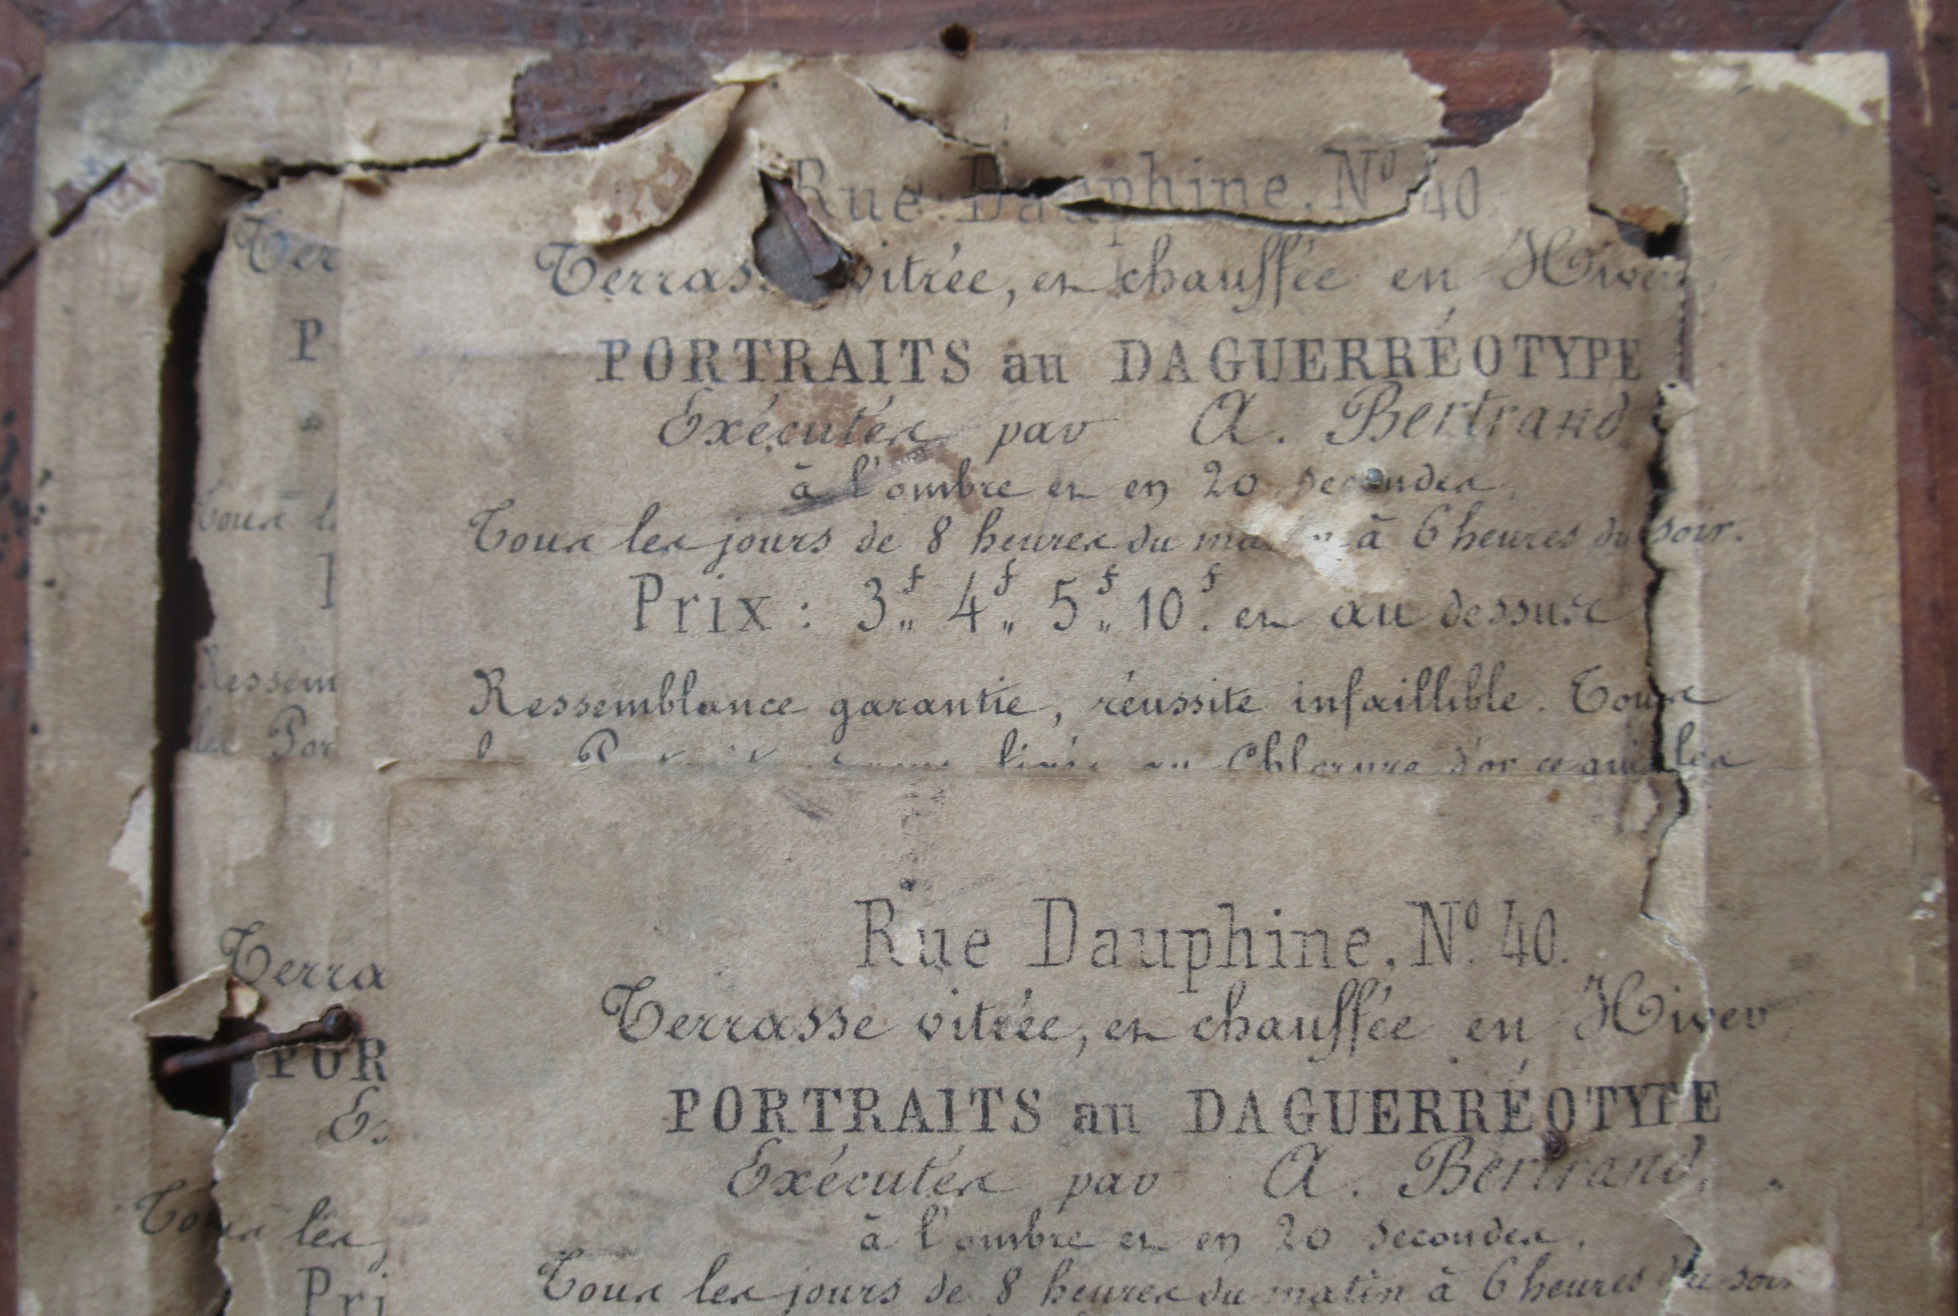 Rue Dauphine, Nº 40
Terrasse vitrée, et chauffée en Hiver
PORTRAITS au DAGUERRÉOTYPE
Exécutés par A. Bertrand,
à l'ombre et en 20 secondes.
Tous les jours de 8 heures du matin à 6 heures du soir.
Prix : 3f„ 4f„ 5f„ 10f. et au dessus
Ressemblance garantie, réussite infaillible. Tous
Chlorure d'or ce qui les
Ter
P
Tous l
Ressem
les Por
Rue Dauphine, Nº 40.
Terrasse vitrée, et chauffée en Hiver,
PORTRAITS au DAGUERRÉOTYPE
Exécutés par A. Bertrand,
à l'ombre et en 20 secondes.
Tous les jours de 8 heures du matin à 6 heures du soir
Terra
POR
Ex
Tous les j
Pri